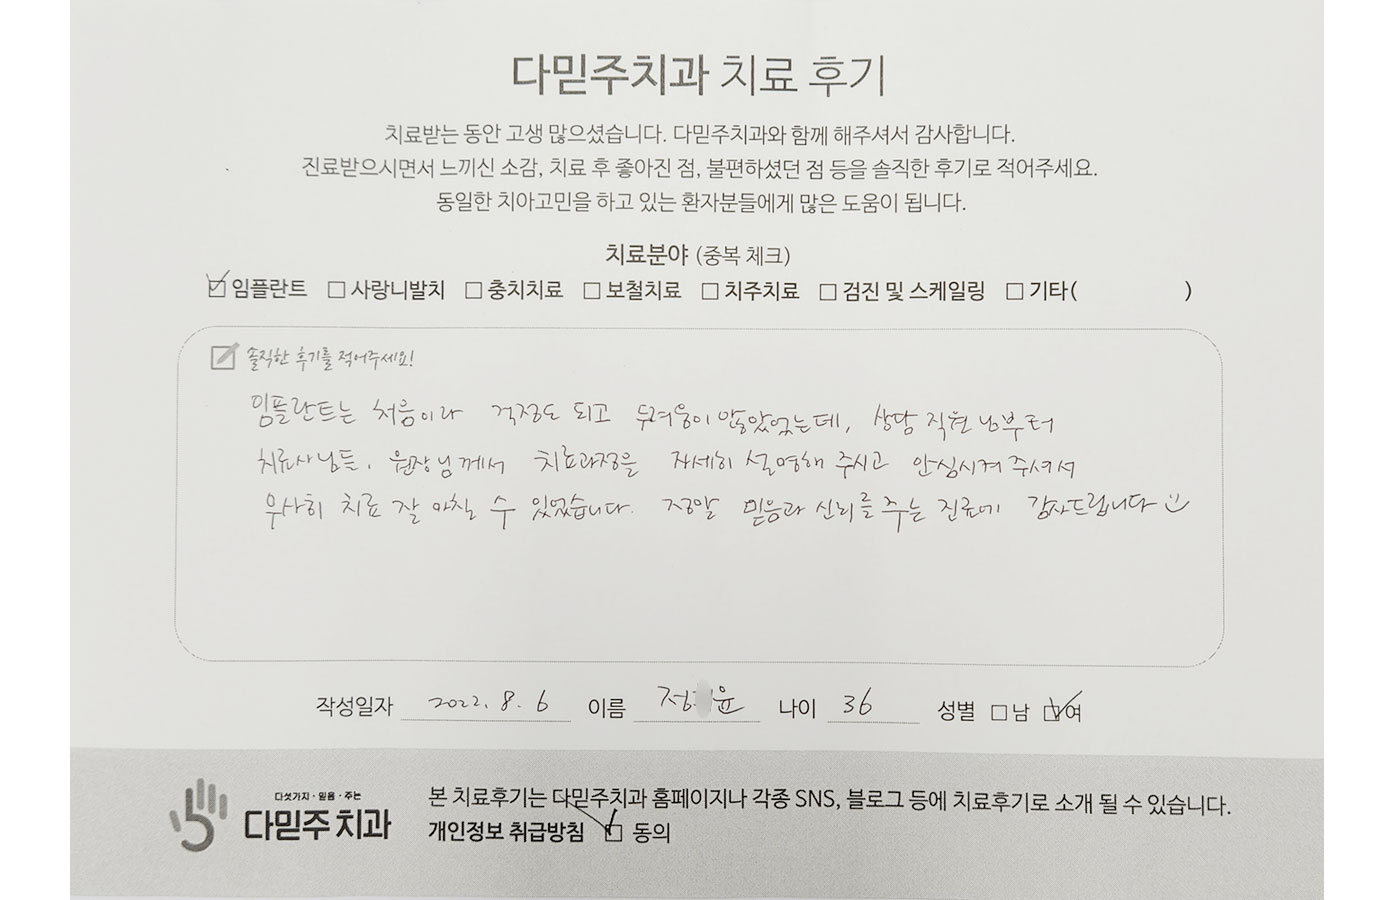 다믿주치과 치료 후기
치료받는 동안 고생 많으셨습니다. 다믿주치과와 함께 해주셔서 감사합니다.
진료받으시면서 느끼신 소감, 치료 후 좋아진 점, 불편하셨던 점 등을 솔직한 후기로 적어주세요.
동일한 치아고민을 하고 있는 환자분들에게 많은 도움이 됩니다.
치료분야 (중복 체크)
☑ 임플란트 □ 사랑니발치 □ 충치치료 □ 보철치료 □ 치주치료 □ 검진 및 스케일링 □ 기타( )
솔직한 후기를 적어주세요!
임플란트는 처음이라 걱정도 되고 두려움이 많았었는데, 상담 직원 님부터
치료사님들, 원장님께서 치료과정을 자세히 설명해 주시고 안심시켜 주셔서
무사히 치료 잘 마칠 수 있었습니다. 정말 믿음과 신뢰를 주는 진료에 감사드립니다
작성일자 2022. 8. 6 이름 정 윤 나이 36 성별 □ 남 ☑ 여
다섯가지 · 믿음 · 주는
다믿주 치과
본 치료후기는 다믿주치과 홈페이지나 각종 SNS, 블로그 등에 치료후기로 소개 될 수 있습니다.
개인정보 취급방침 ☑ 동의